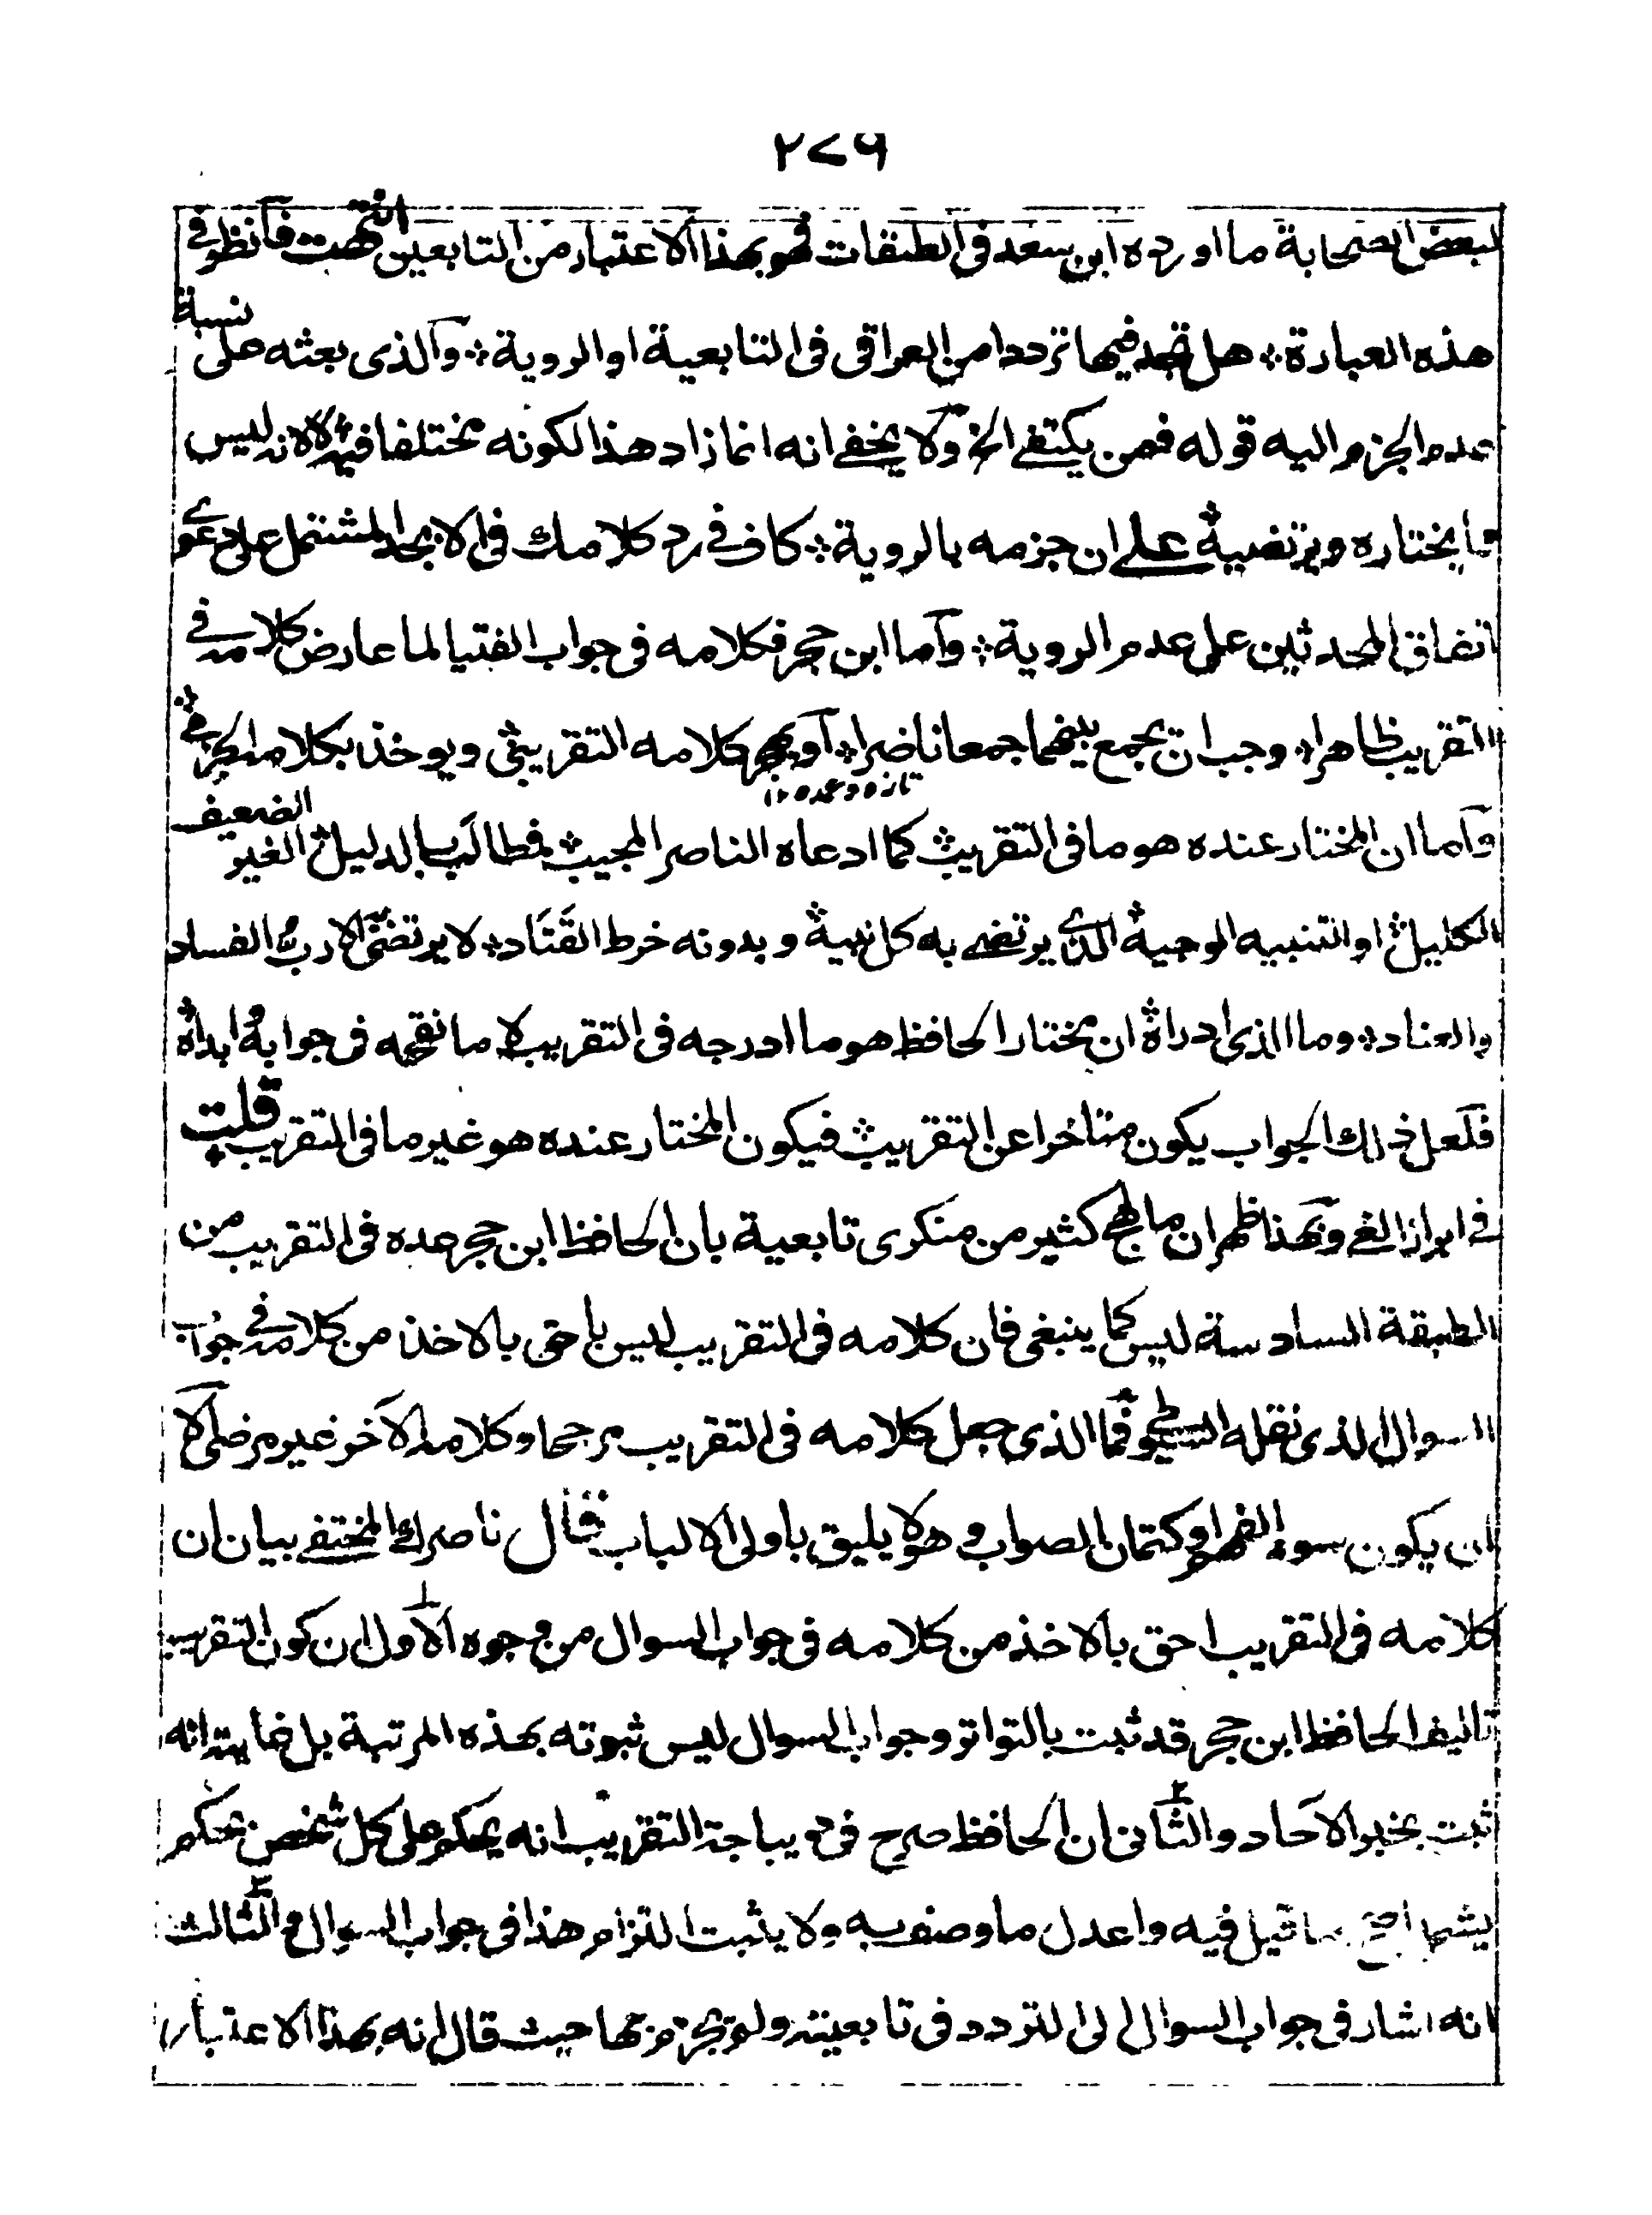 ٢٧٦
لبعض الصحابة ما اورده ابن سعد فى الطبقات فهو بهذا الاعتبار من التابعين انتهت فانظر فى
هذه العبارة؞ هل تجد فيها ترددا من العراقى فى التابعية او الروية؞ والذى بعثه على نسبة
عدم الجزم اليه قوله فمن يكتفى الخ ولا يخفى انه انما زاد هذا لكونه مختلفا فيه لا لانه ليس
ما يختاره ويرتضيه؞ على ان جزمه بالروية؞ كاف فى رد كلامك فى الابجد المشتمل على دعوى
اتفاق المحدثين على عدم الروية؞ واما ابن حجر فكلامه فى جواب الفتيا لما عارض كلامه فى
التقريب ظاهرا؞ وجب ان يجمع بينهما جمعا ناضرا؞ او يهجر كلامه التقريبى ويوخذ بكلامه
تازه وعمده ١٢
واما ان المختار عنده هو ما فى التقريب؞ كما ادعاه الناصر المجيب؞ فمطالب بالدليل؞ الغير الضعيف
الكليل؞ او التنبيه الوجيه؞ الذى يرتضى به كل نبيه؞ وبدونه خرط القتاد؞ لا يرتضى الا رب الفساد
والعناد؞ وما الذى ادراه؞ ان مختار الحافظ هو ما ادرجه فى التقريب لا ما نقحه فى جوابه ابداه؞
فلعل ذلك الجواب يكون متاخرا عن التقريب؞ فيكون المختار عنده هو غير ما فى التقريب؞ قلت
فى ابراز الغى وبهذا ظهر ان ما لهج كثير من منكرى تابعية بان الحافظ ابن حجر عده فى التقريب من
الطبقة السادسة ليس كما ينبغى فان كلامه فى التقريب ليس باحق بالاخذ من كلامه فى جواب
السوال الذى نقله السيوطى فما الذى جعل كلامه فى التقريب مرجحا وكلامه الآخر غير مرضى الا
ان يكون سوء الفهم او كتمان الصواب وهو لا يليق باولى الالباب؞ قال ناصرك المختفى بيان ان
كلامه فى التقريب احق بالاخذ من كلامه فى جواب السوال من وجوه الاول ان كون التقريب
تاليف الحافظ ابن حجر قد ثبت بالتواتر وجواب السوال ليس ثبوته بهذه المرتبة بل غايته انه
ثبت بخبر الآحاد والثانى ان الحافظ صرح فى ديباجة التقريب انه يحكم على كل شخص بحكم
يشمل اصح ما قيل فيه واعدل ما وصف به ولا يثبت التزام هذا فى جواب السوال والثالث
انه اشار فى جواب السوال الى التردد فى تابعيته ولم يجزم بها حيث قال انه بهذا الاعتبار